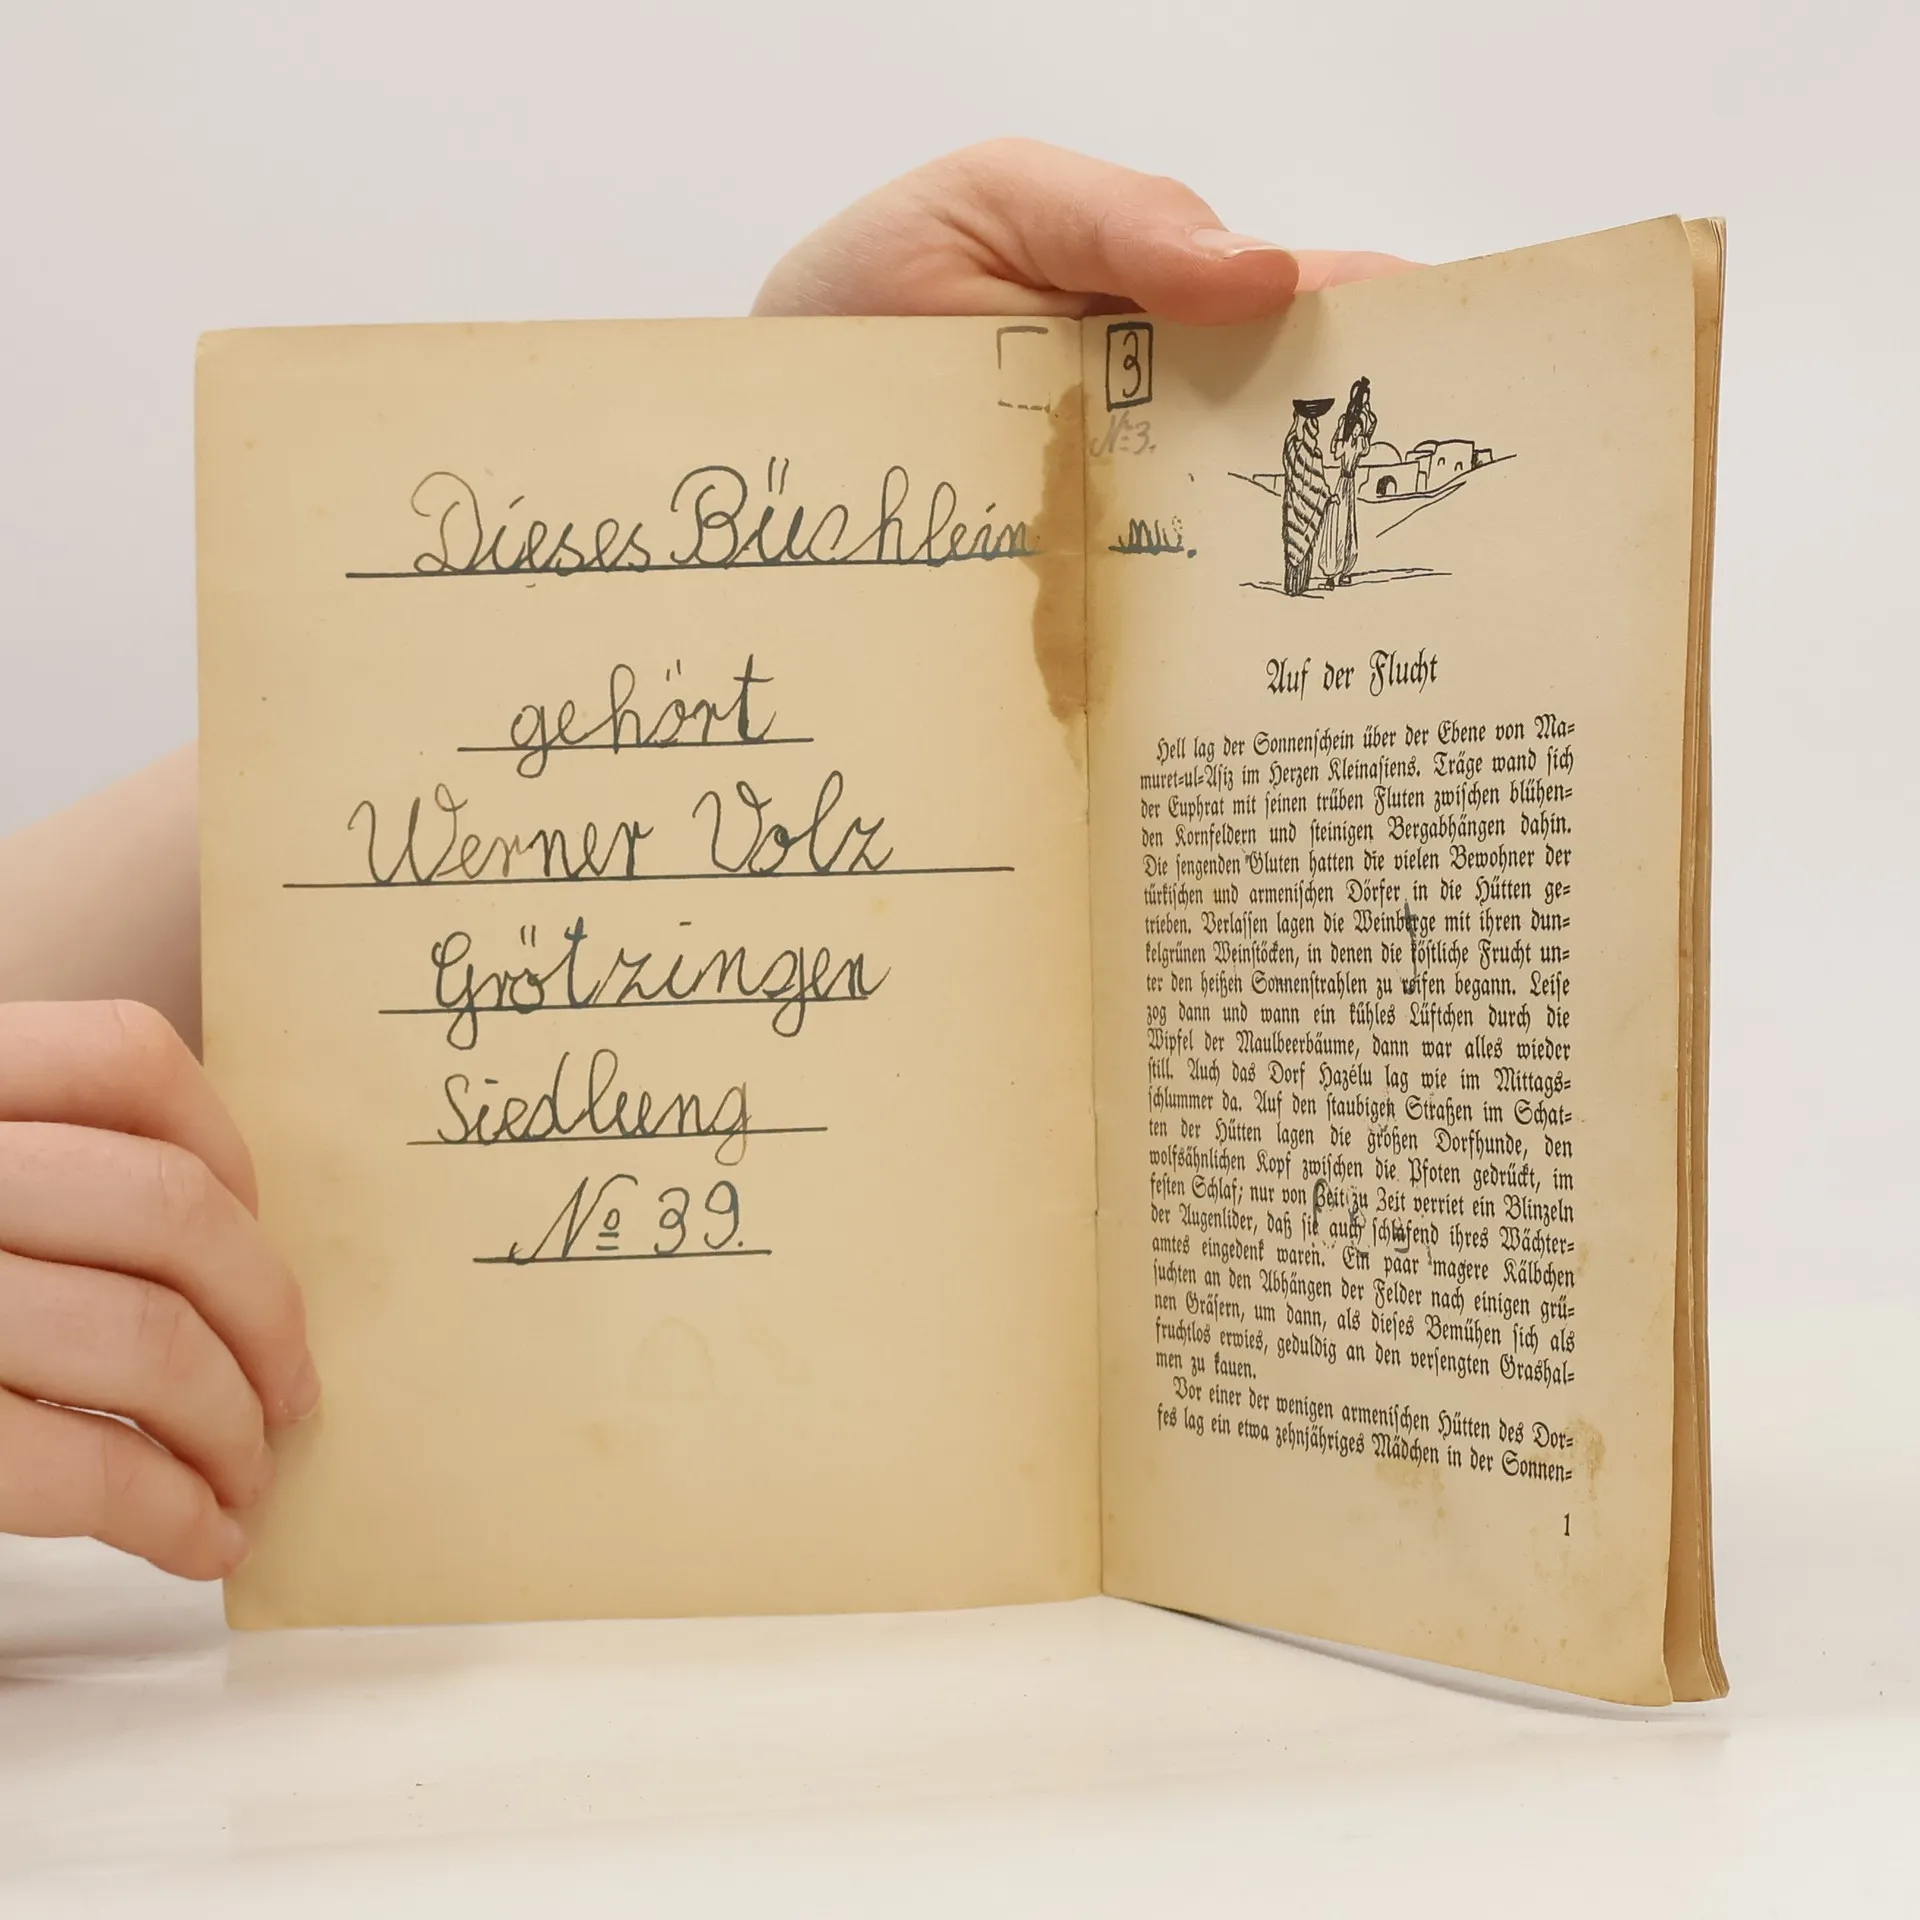 Dieses Büchlein
gehört
Werner Volz
Grötzingen
Siedlung
№ 39.
3
№ 3.
Auf der Flucht
Hell lag der Sonnenschein über der Ebene von Ma=
muret=ul=Asiz im Herzen Kleinasiens. Träge wand sich
der Euphrat mit seinen trüben Fluten zwischen blühen=
den Kornfeldern und steinigen Bergabhängen dahin.
Die sengenden Gluten hatten die vielen Bewohner der
türkischen und armenischen Dörfer in die Hütten ge=
trieben. Verlassen lagen die Weinberge mit ihren dun=
kelgrünen Weinstöcken, in denen die köstliche Frucht un=
ter den heißen Sonnenstrahlen zu reifen begann. Leise
zog dann und wann ein kühles Lüftchen durch die
Wipfel der Maulbeerbäume, dann war alles wieder
still. Auch das Dorf Hazélu lag wie im Mittags=
schlummer da. Auf den staubigen Straßen im Schat=
ten der Hütten lagen die großen Dorfhunde, den
wolfsähnlichen Kopf zwischen die Pfoten gedrückt, im
festen Schlaf; nur von Zeit zu Zeit verriet ein Blinzeln
der Augenlider, daß sie auch schlafend ihres Wächter=
amtes eingedenk waren. Ein paar magere Kälbchen
suchten an den Abhängen der Felder nach einigen grü=
nen Gräsern, um dann, als dieses Bemühen sich als
fruchtlos erwies, geduldig an den versengten Grashal=
men zu kauen.
Vor einer der wenigen armenischen Hütten des Dor=
fes lag ein etwa zehnjähriges Mädchen in der Sonnen=
1